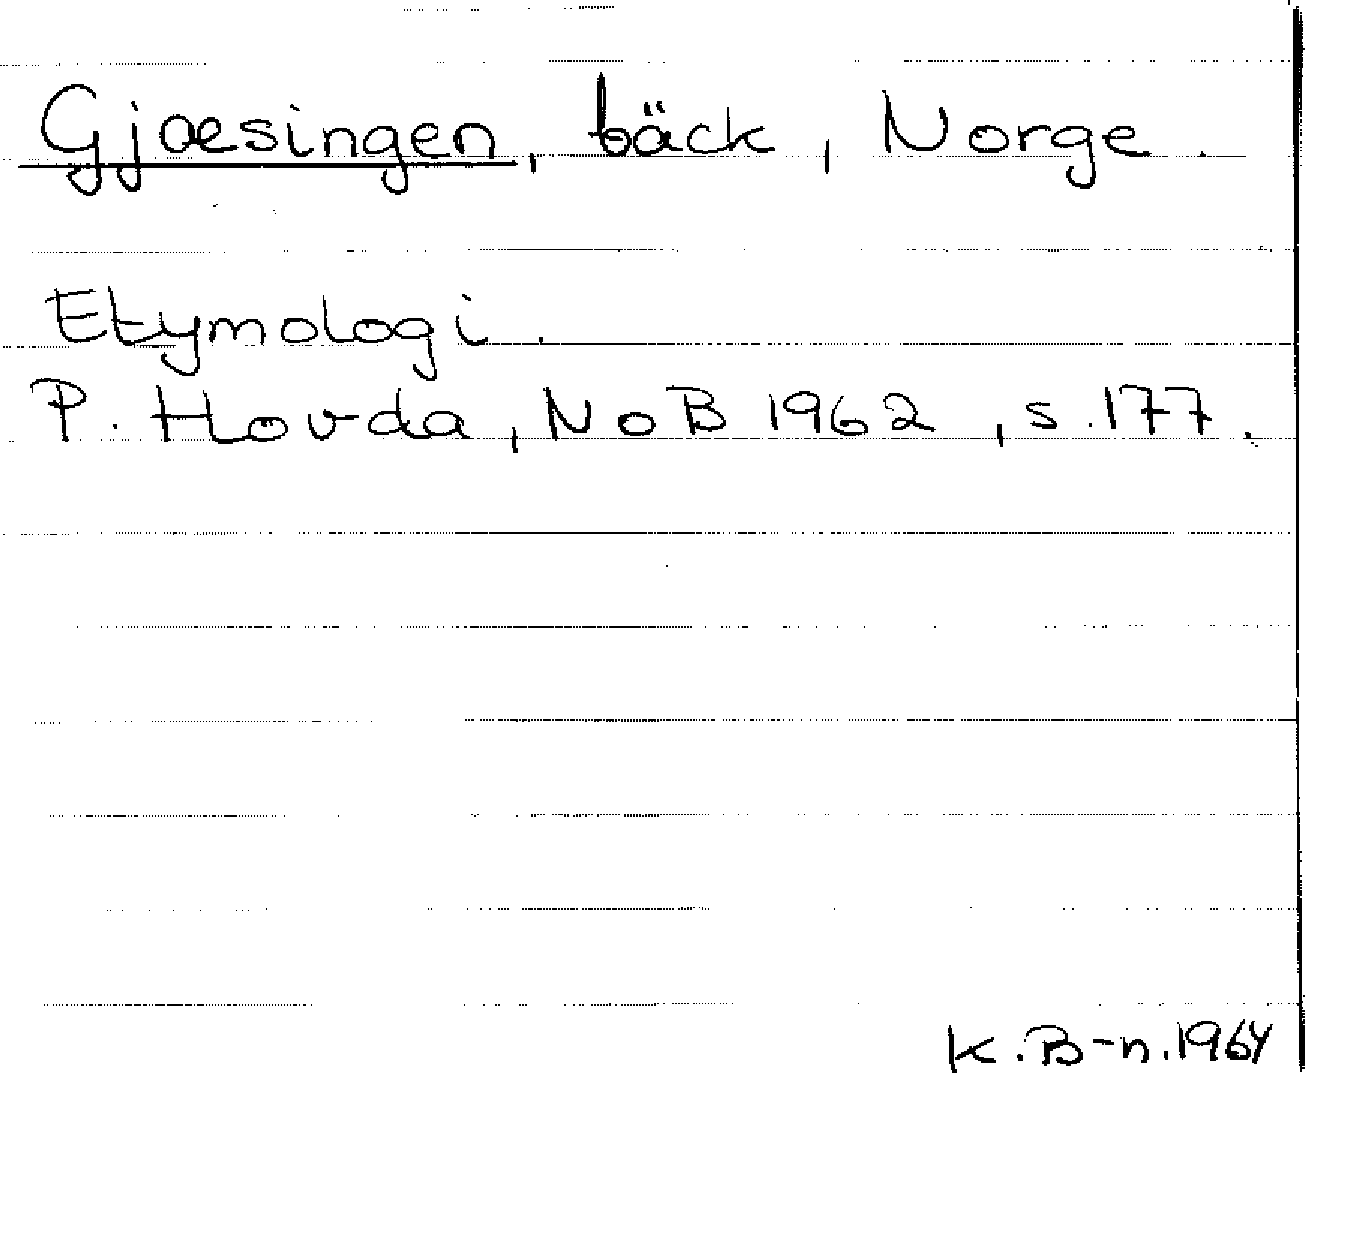 Gjæsingen, bäck, Norge.
Etymologi.
P. Hovda, NoB 1962, s. 177.
K. B-n. 1964